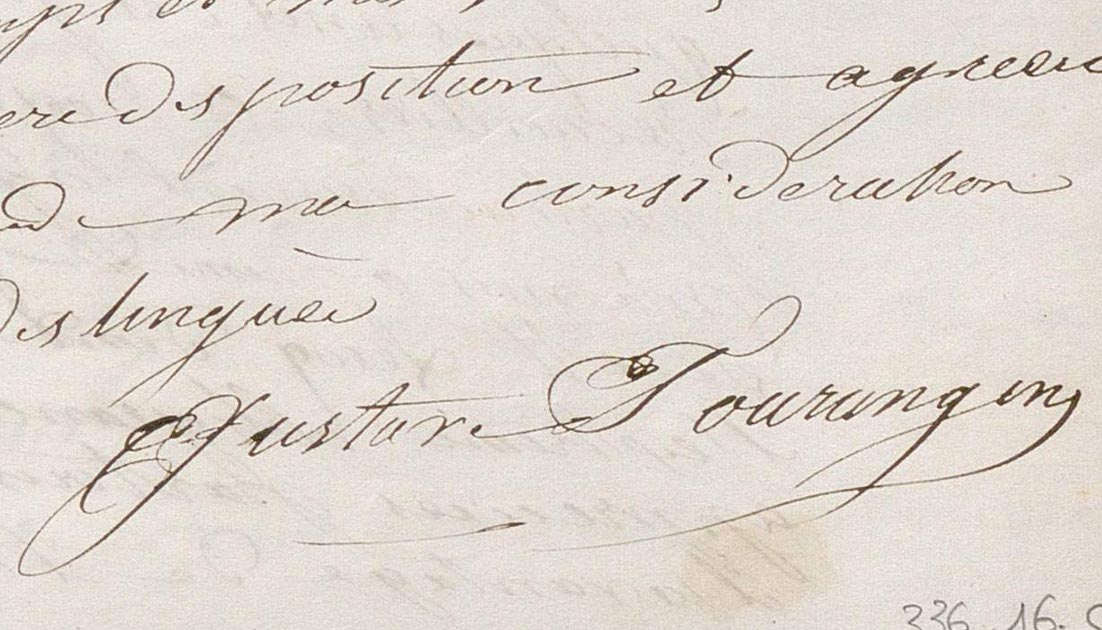 disposition et agréer
de ma consideration
distinguée
Gustave Tourangin
336.16.